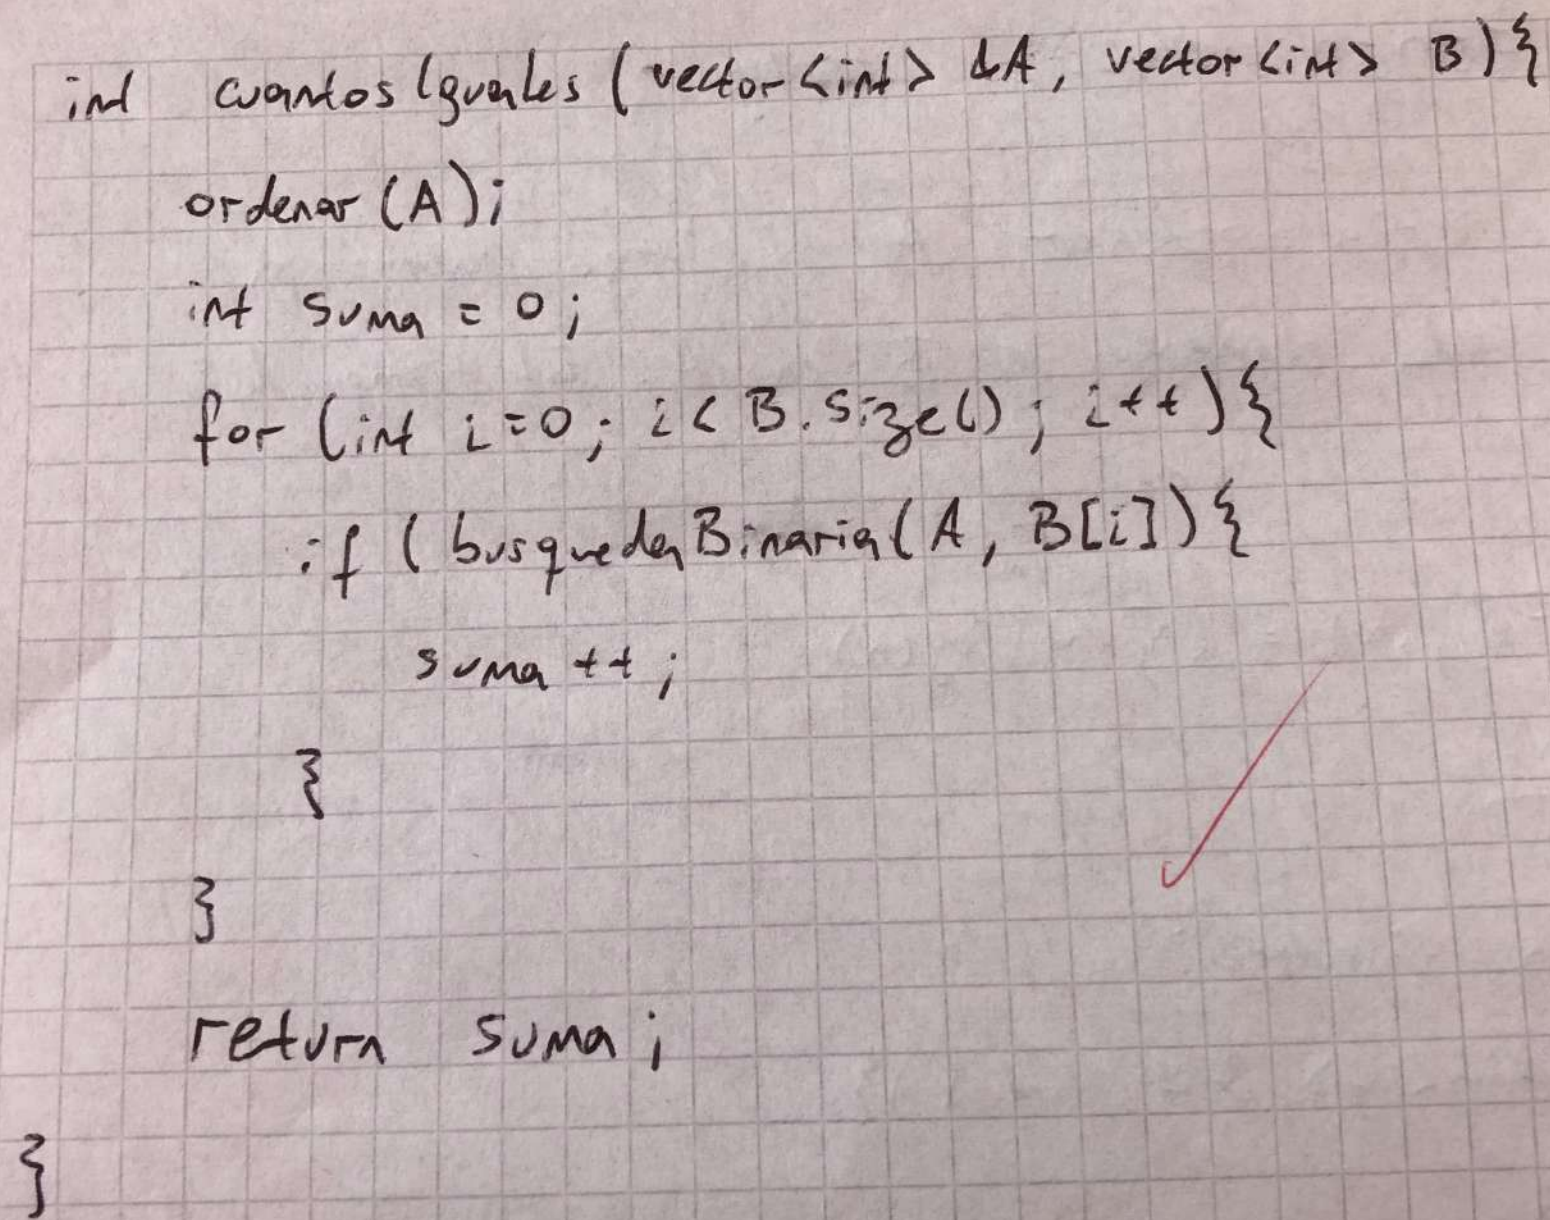 int cuantosIguales (vector<int> &A, vector<int> B){
ordenar (A);
int suma = 0;
for (int i=0; i< B.size(); i++){
if ( busquedaBinaria( A, B[i]){
suma ++;
}
}
return suma;
}